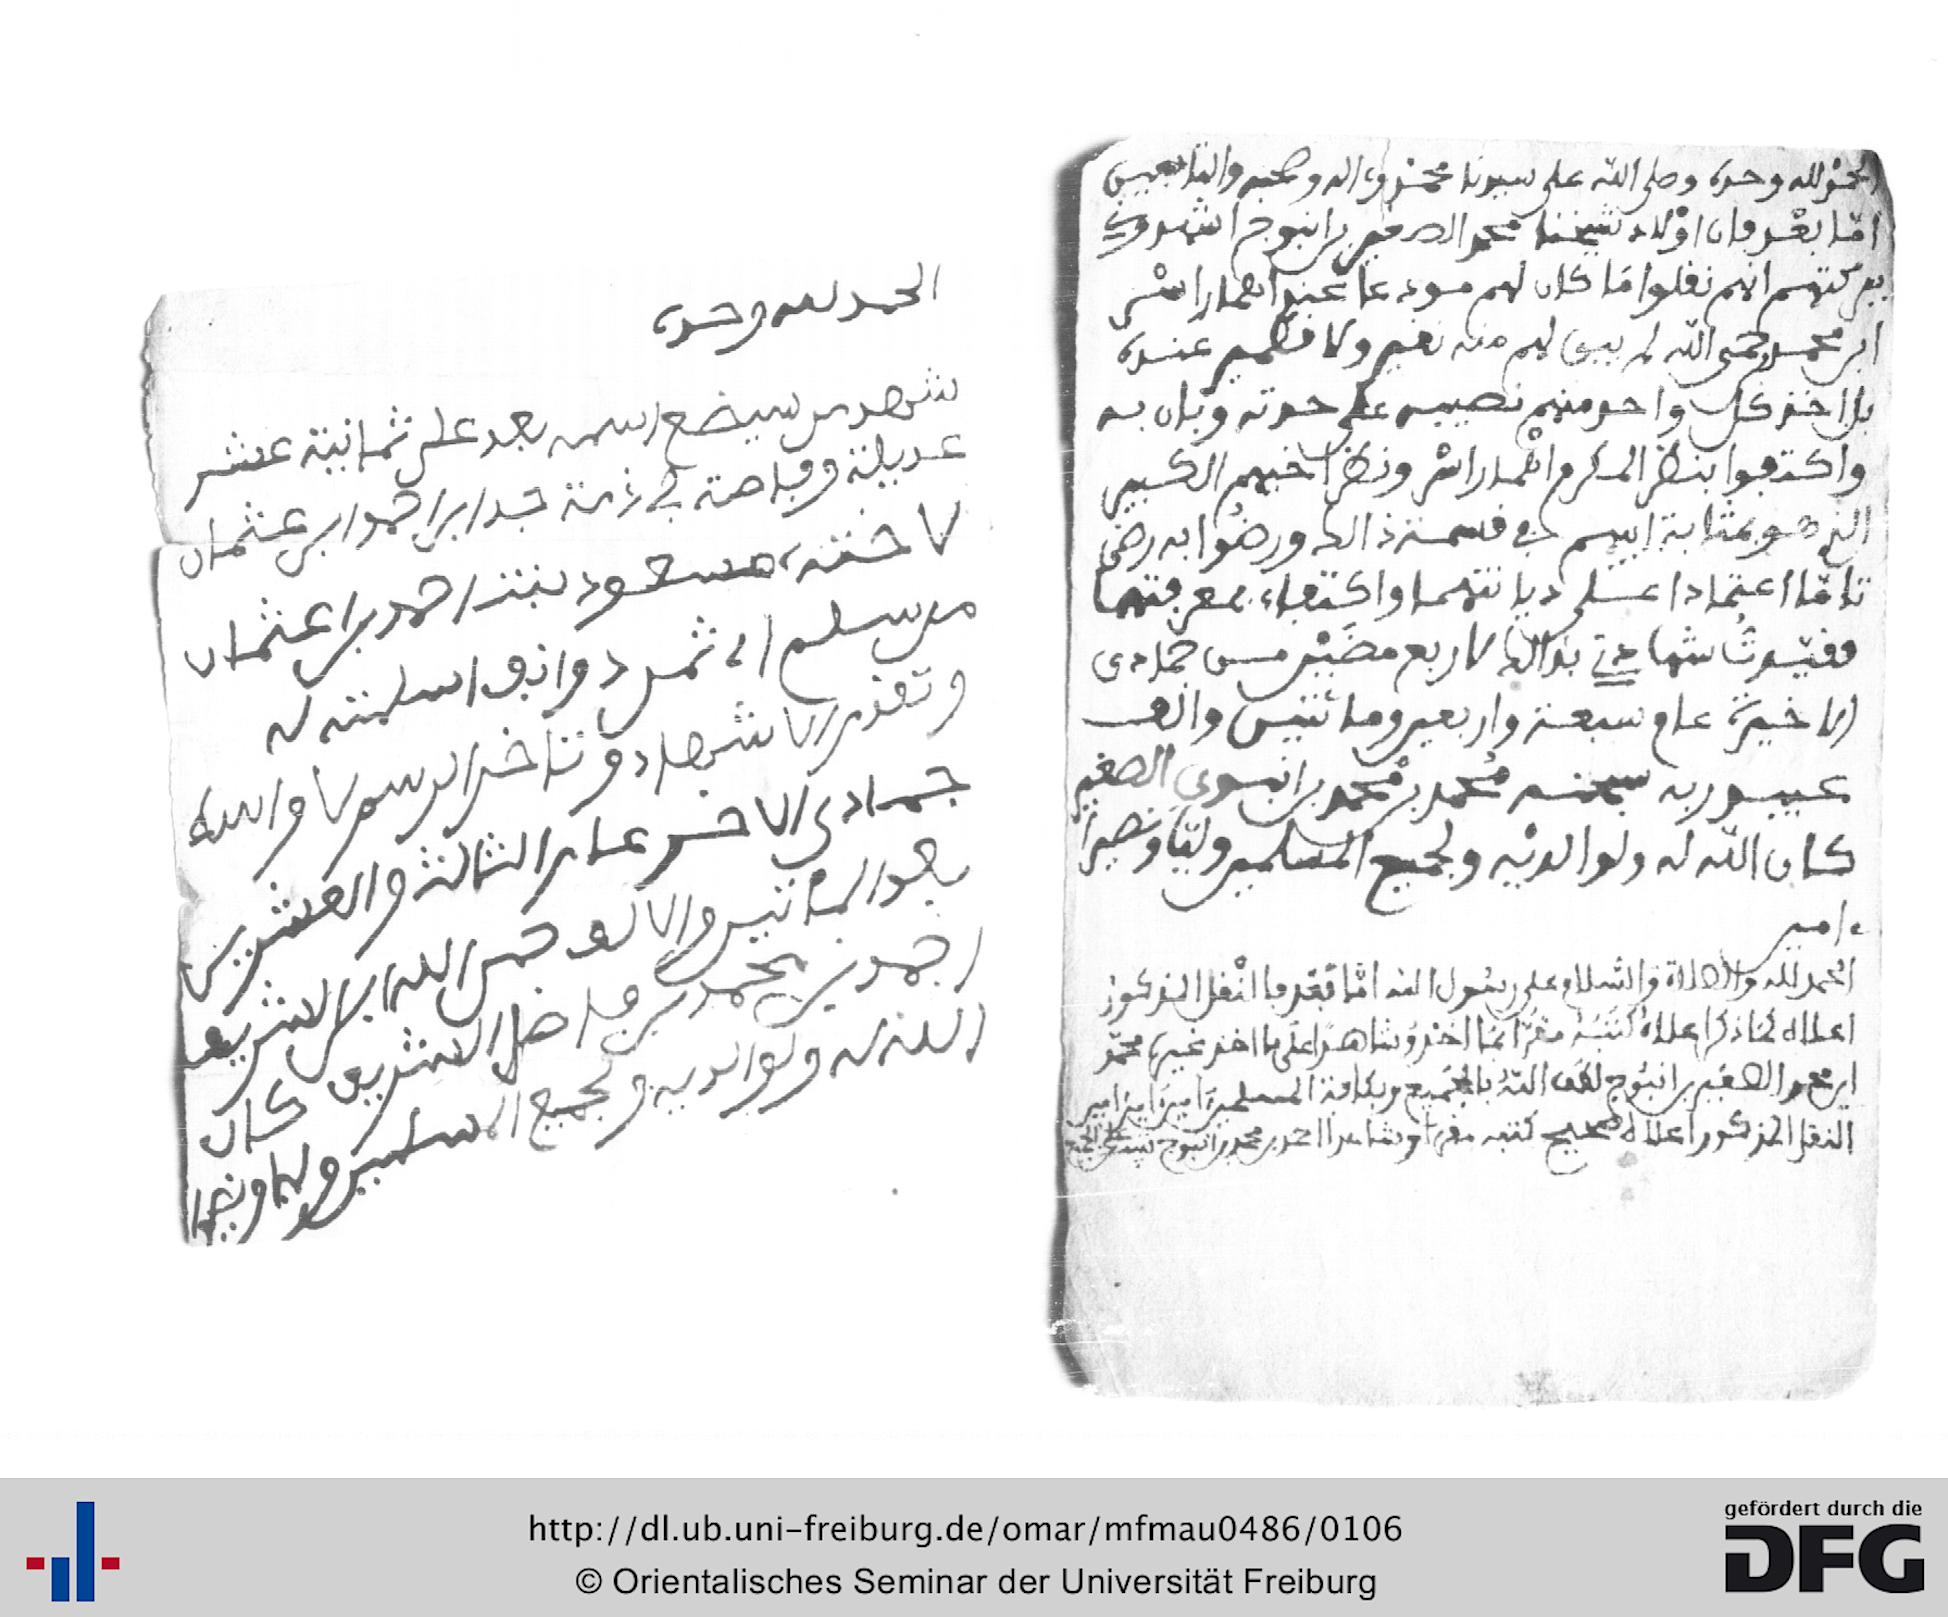 الحمد لله وحده وصلى الله على سيدنا محمد وءاله وصحبه والتابعين
امّا بعد فان اولاد شيخنا محمد الصغير بن انبوج اشهدوني
انهم نقلوا ما كان لهم مودعا عند
ابن محمد رحمه الله لم يبق لهم منه نقير ولا قطمير عنده
بل اخذ كل واحد منهم نصيبه على حدته وبان به
واكتفوا بنظر المكرم ونظر اخيهم الكبير
الذي هو بمثابة ابيهم في قسمة ذالك ورضوا به رضى
تامّا اعتمادا على ديانتهما واكتفاء بمعرفتهما
وقيدت شهادتي بذالك لاربع مضين من جمادى
الاخيرة عام سبعة واربعين ومائتين والف
عبيد ربه محمد بن محمد بن انبوج الصغير
كان الله له ولوالديه ولجميع المسلمين وليّا ونصيرا
ءامين
الحمد لله والصلاة والسلام على رسول الله امّا بعد فالنقل المذكور
اعلاه كما ذكر اعلاه كتبه مقرا بما اخذ وشاهدا على ما اخذ غيره محمد
ابن محمد الصغير بن انبوج لطف الله بالجميع وبكافة المسلمين ءامين ءامين
النقل المذكور اعلاه صحيح كتبه مقرا وشاهدا احمد بن محمد بن انبوج
الحمد لله وحده
شهد من سيضع اسمه بعد على ثمانية عشر
عديلة وفاصة في ذمة احمد ابن عثمان
لاخته مسعود بنت احمد بن اعثمان
من سلم الى ثمن دوانق اسلمته له
وتقدم الاشهاد وتاخر الرسم لاواسط
جمادى الاخر عام الثالث والعشرين
بعد المائتين والالف الله ابن الشريف
احمد بن محمد بن فاضل الشريف كان
الله له ولوالديه ولجميع المسلمين وليا ونصيرا
http://dl.ub.uni-freiburg.de/omar/mfmau0486/0106
© Orientalisches Seminar der Universität Freiburg
gefördert durch die
DFG